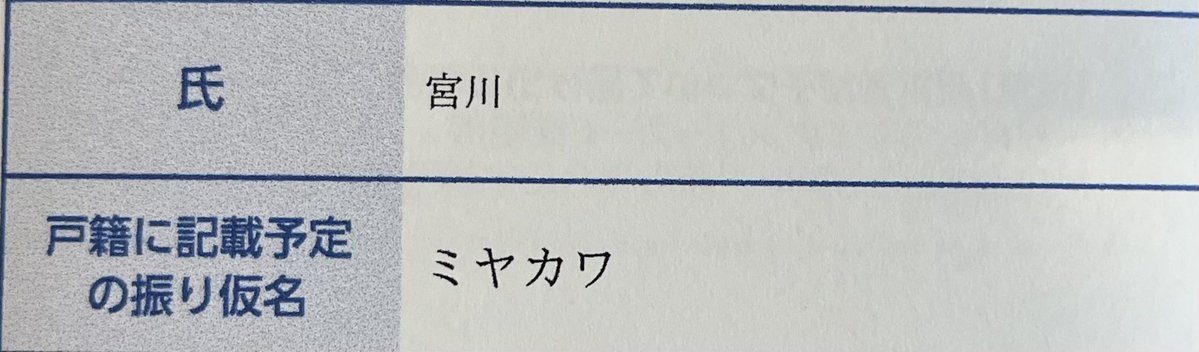 氏
宮川
戸籍に記載予定
の振り仮名
ミヤカワ